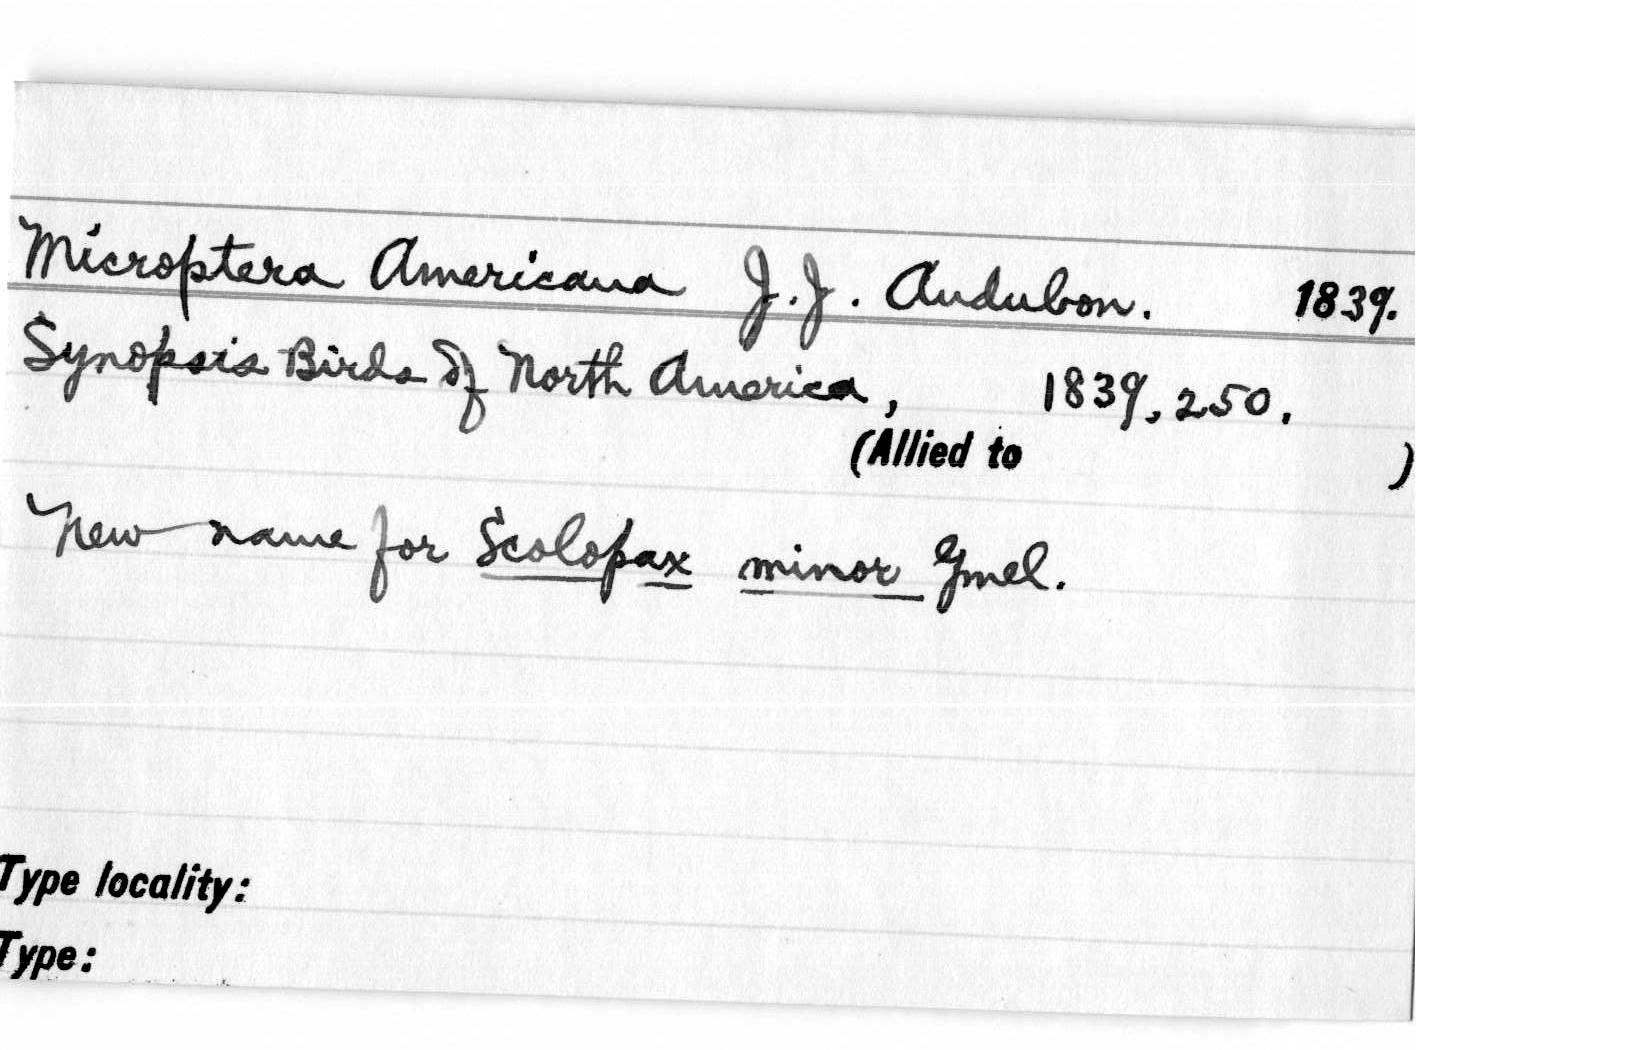 Microptera Americana J.J. Audubon. 1839.
Synopsis Birds of North America, 1839, 250.
(Allied to )
New name for Scolopax minor Gmel.
Type locality:
Type: